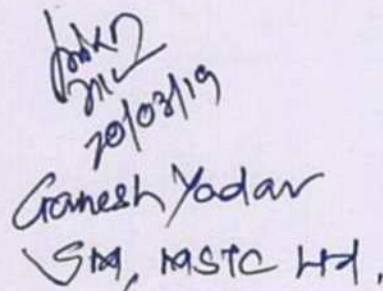 20/03/19
Ganesh Yadav
SM, MSTC Ltd.